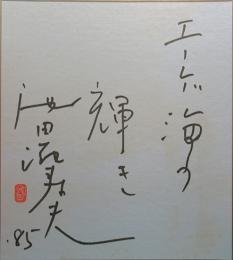 エーゲ海の
輝き
池田満寿夫
'85